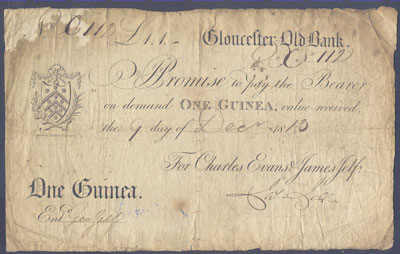 No C 112 £1.1.- Gloucester Old Bank.
No C 112
I Promise to pay the Bearer
on demand ONE GUINEA, value received.
the 9 day of Decr 1813
For Charles Evans & James Jelf.
One Guinea.
Entd.